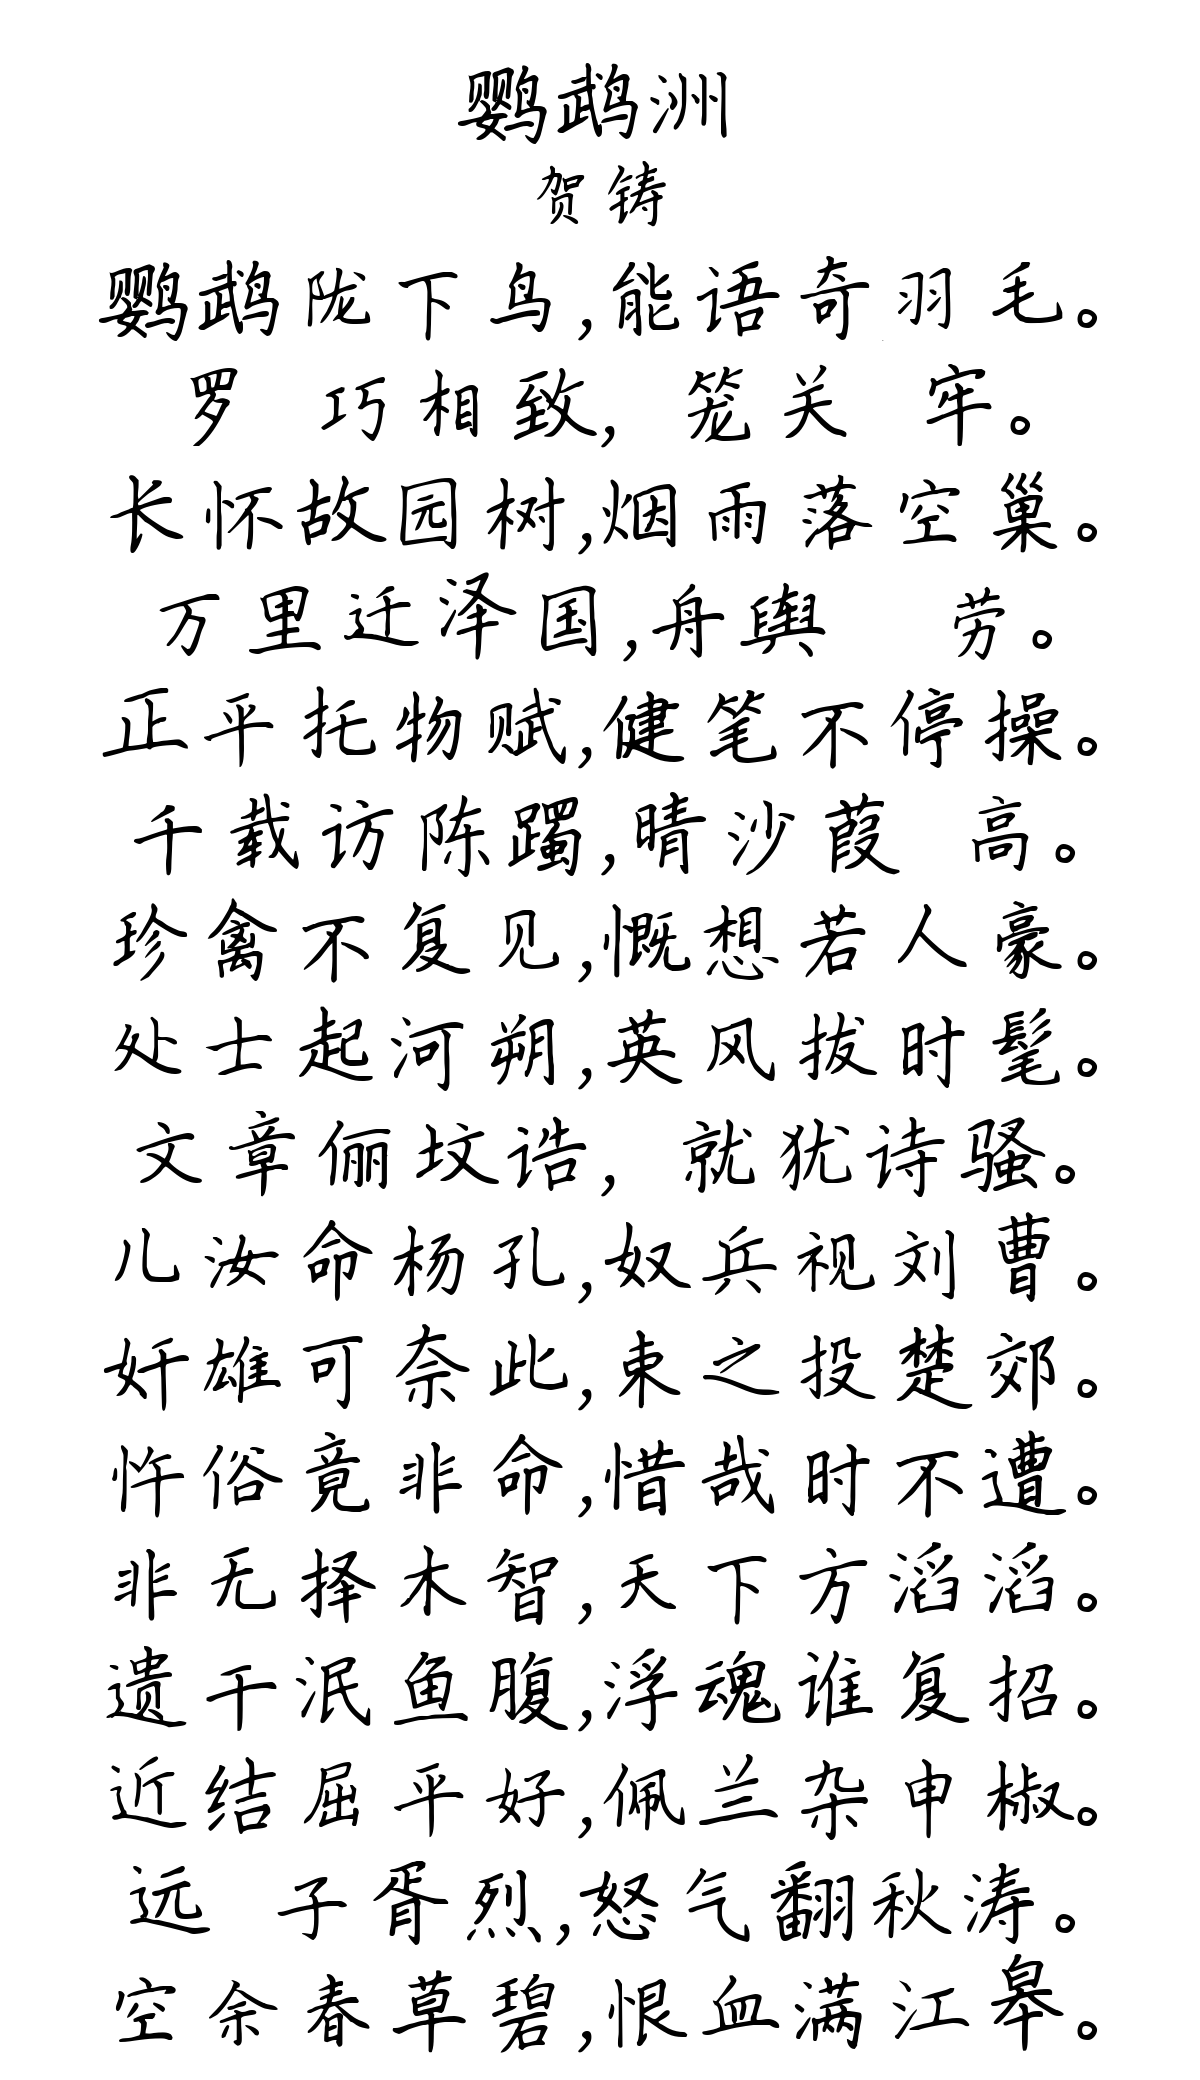 鹦鹉洲
贺铸
鹦鹉陇下鸟,能语奇羽毛。
罗 巧相致, 笼关 牢。
长怀故园树,烟雨落空巢。
万里迁泽国,舟舆 劳。
正平托物赋,健笔不停操。
千载访陈躅,晴沙葭 高。
珍禽不复见,慨想若人豪。
处士起河朔,英风拔时髦。
文章俪坟诰, 就犹诗骚。
儿汝命杨孔,奴兵视刘曹。
奸雄可奈此,束之投楚郊。
忤俗竟非命,惜哉时不遭。
非无择木智,天下方滔滔。
遗干泯鱼腹,浮魂谁复招。
近结屈平好,佩兰杂申椒。
远 子胥烈,怒气翻秋涛。
空余春草碧,恨血满江皋。